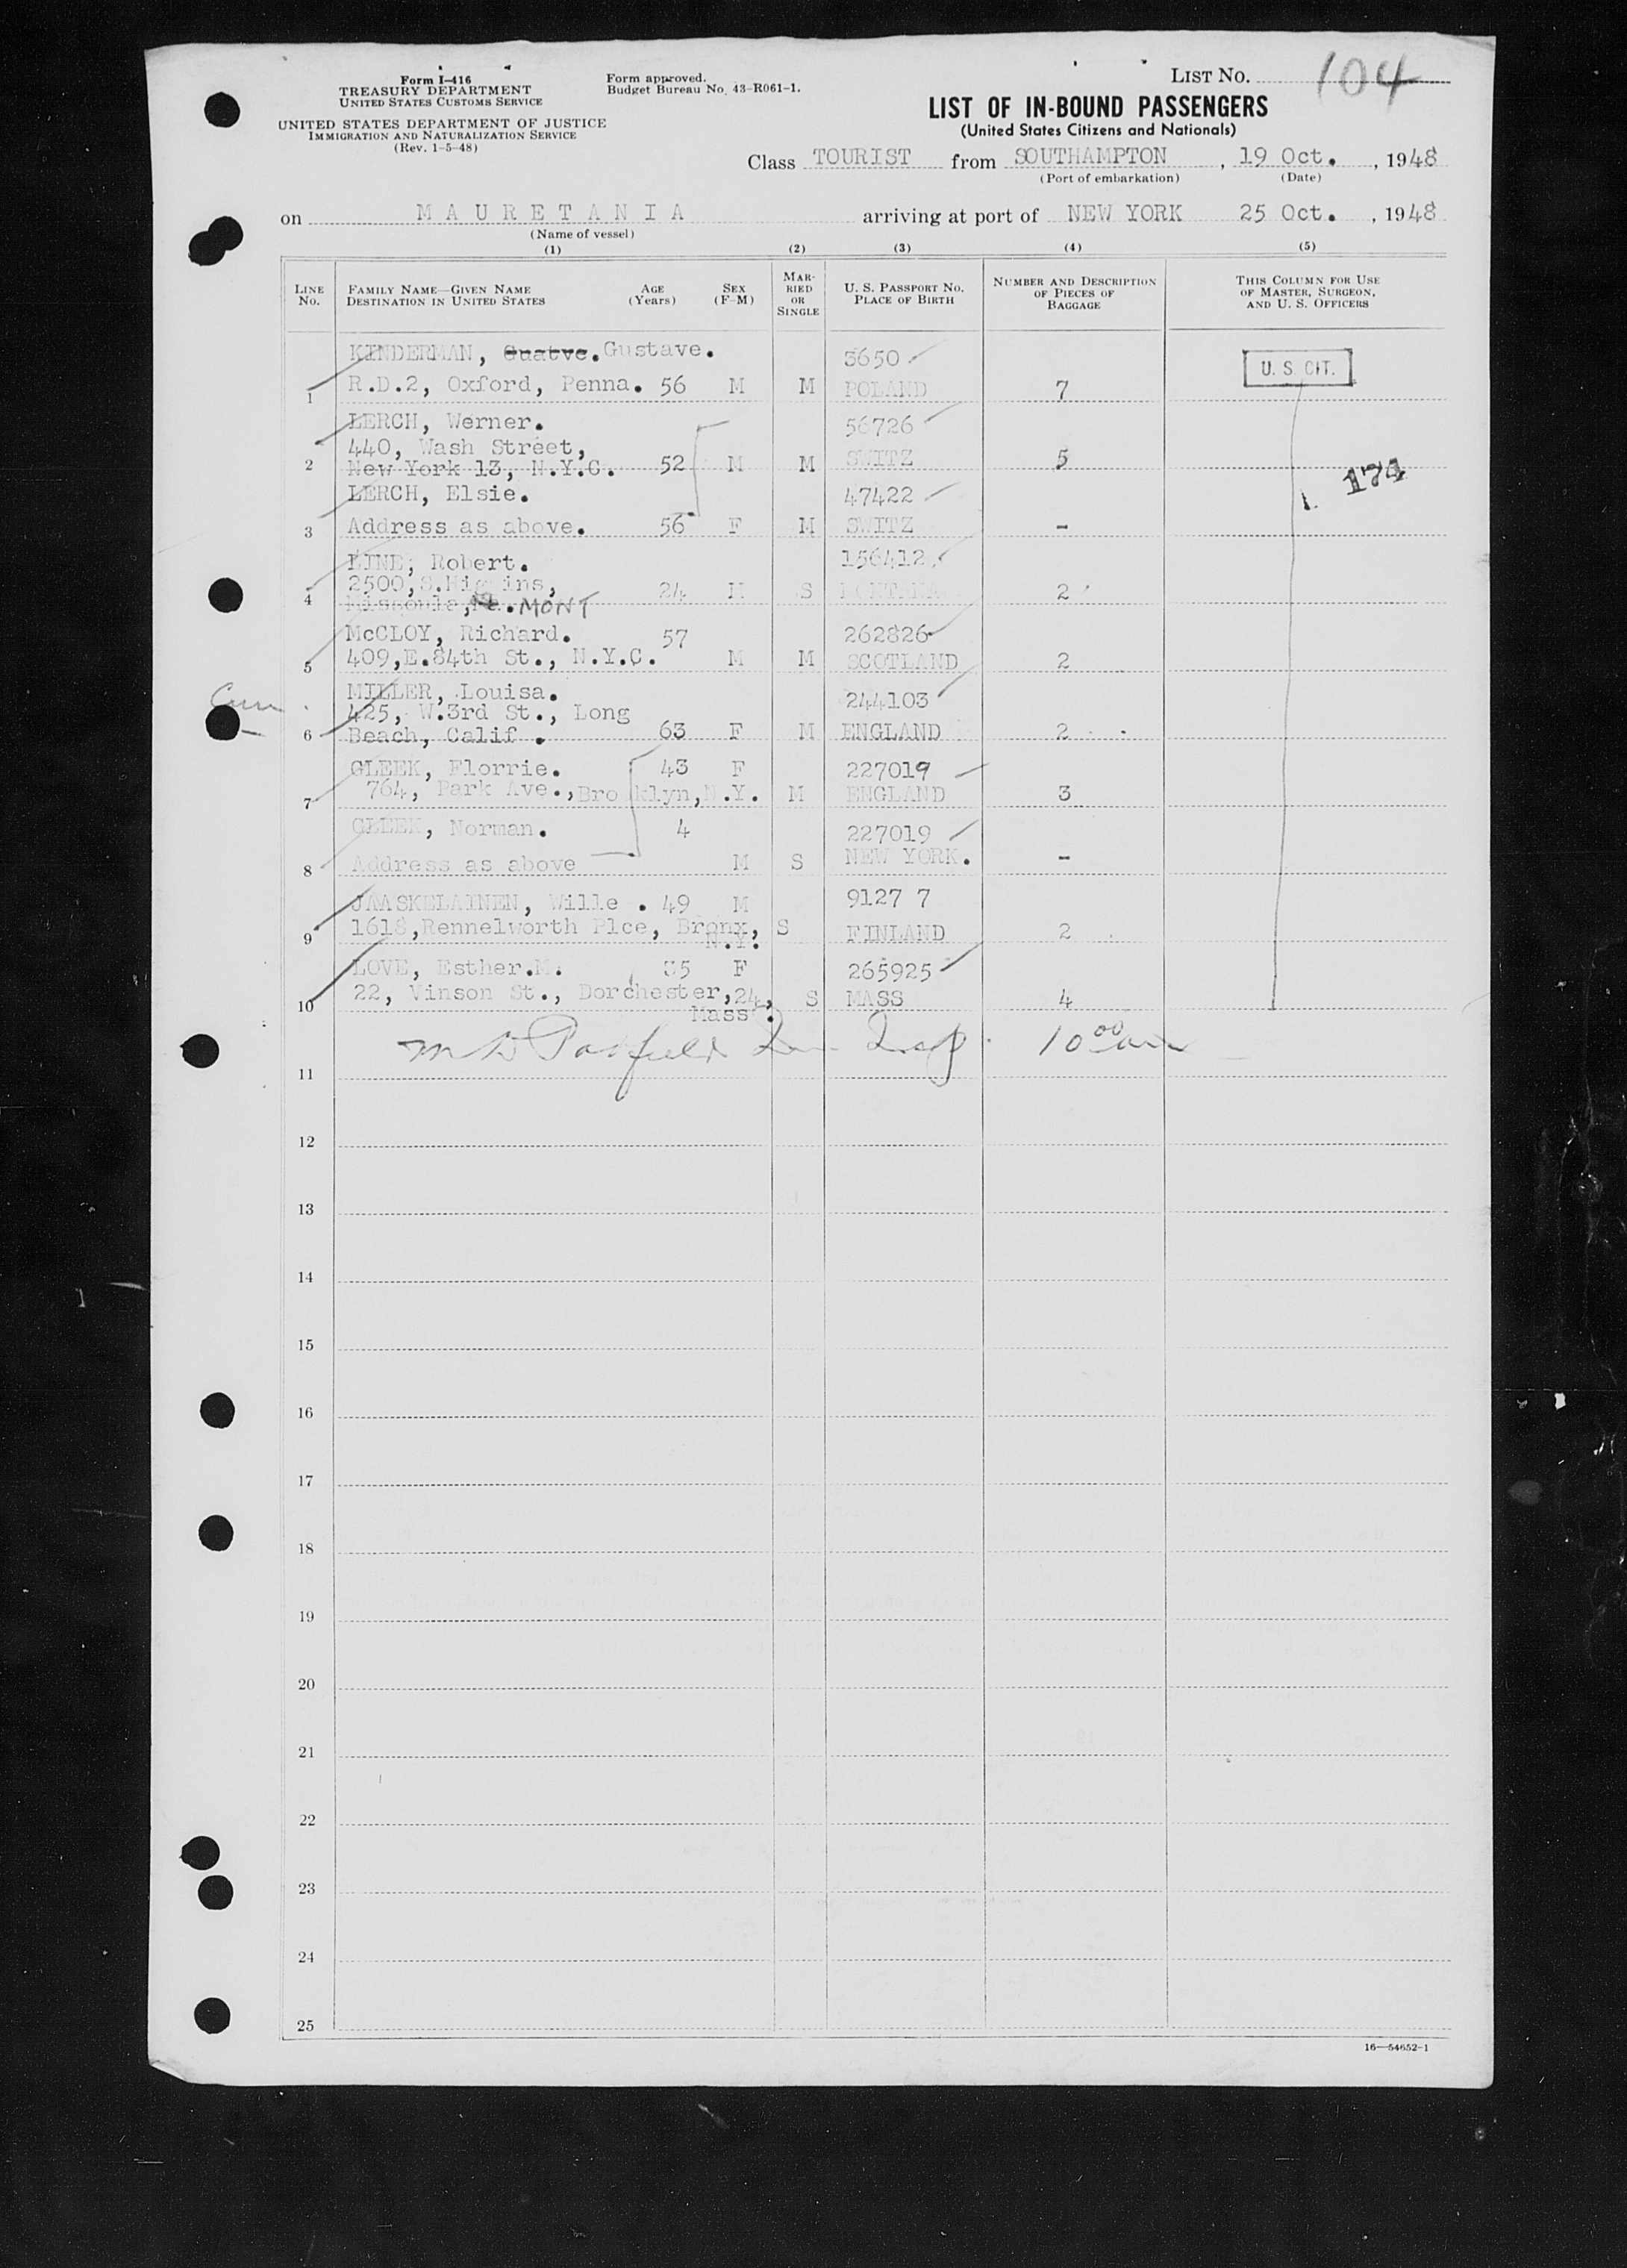 LIST NO. 104
Form I-416
TREASURY DEPARTMENT
UNITED STATES CUSTOMS SERVICE
UNITED STATES DEPARTMENT OF JUSTICE
IMMIGRATION AND NATURALIZATION SERVICE
(Rev. 1-5-48)
Form approved.
Budget Bureau No. 43-R061-1.
LIST OF IN-BOUND PASSENGERS
(United States Citizens and Nationals)
Class TOURIST from SOUTHAMPTON, 19 Oct., 1948
(Port of embarkation) (Date)
on MAURETANIA arriving at port of NEW YORK 25 Oct., 1948
(Name of vessel)
(1) (2) (3) (4) (5)
LINE NO. FAMILY NAME—GIVEN NAME DESTINATION IN UNITED STATES AGE (Years) SEX (F-M) MARRIED OR SINGLE U. S. PASSPORT NO. PLACE OF BIRTH NUMBER AND DESCRIPTION OF PIECES OF BAGGAGE THIS COLUMN FOR USE OF MASTER, SURGEON, AND U. S. OFFICERS
KINDERMAN, Guatve. Gustave. 3650 U. S. CIT.
1 R.D.2, Oxford, Penna. 56 M M POLAND 7
LERCH, Werner. 56726
440, Wash Street,
2 New York 13, N.Y.C. 52 M M SWITZ 5 174
LERCH, Elsie. 47422
3 Address as above. 56 F M SWITZ -
LINE, Robert. 156412
2500, S.Higgins, 24 M S MONTANA 2
4 Missoula, MONT
McCLOY, Richard. 57 262826
5 409,E.84th St., N.Y.C. M M SCOTLAND 2
MILLER, Louisa. 244103
425, W.3rd St., Long
6 Beach, Calif. 63 F M ENGLAND 2
GLEEK, Florrie. 43 F 227019
7 764, Park Ave., Brooklyn, N.Y. M ENGLAND 3
GLEEK, Norman. 4 227019
8 Address as above M S NEW YORK. -
JAASKELAINEN, Wille . 49 M 9127 7
9 1618,Rennelworth Plce, Bronx, S FINLAND 2
N.Y.
LOVE, Esther.M. 35 F 265925
10 22, Vinson St., Dorchester,24, S MASS 4
Mass.
Insp. 10 00 am
11
12
13
14
15
16
17
18
19
20
21
22
23
24
25
16—54652-1